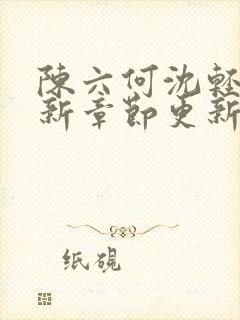 陳六何沈輕
新章節更新
纸硯